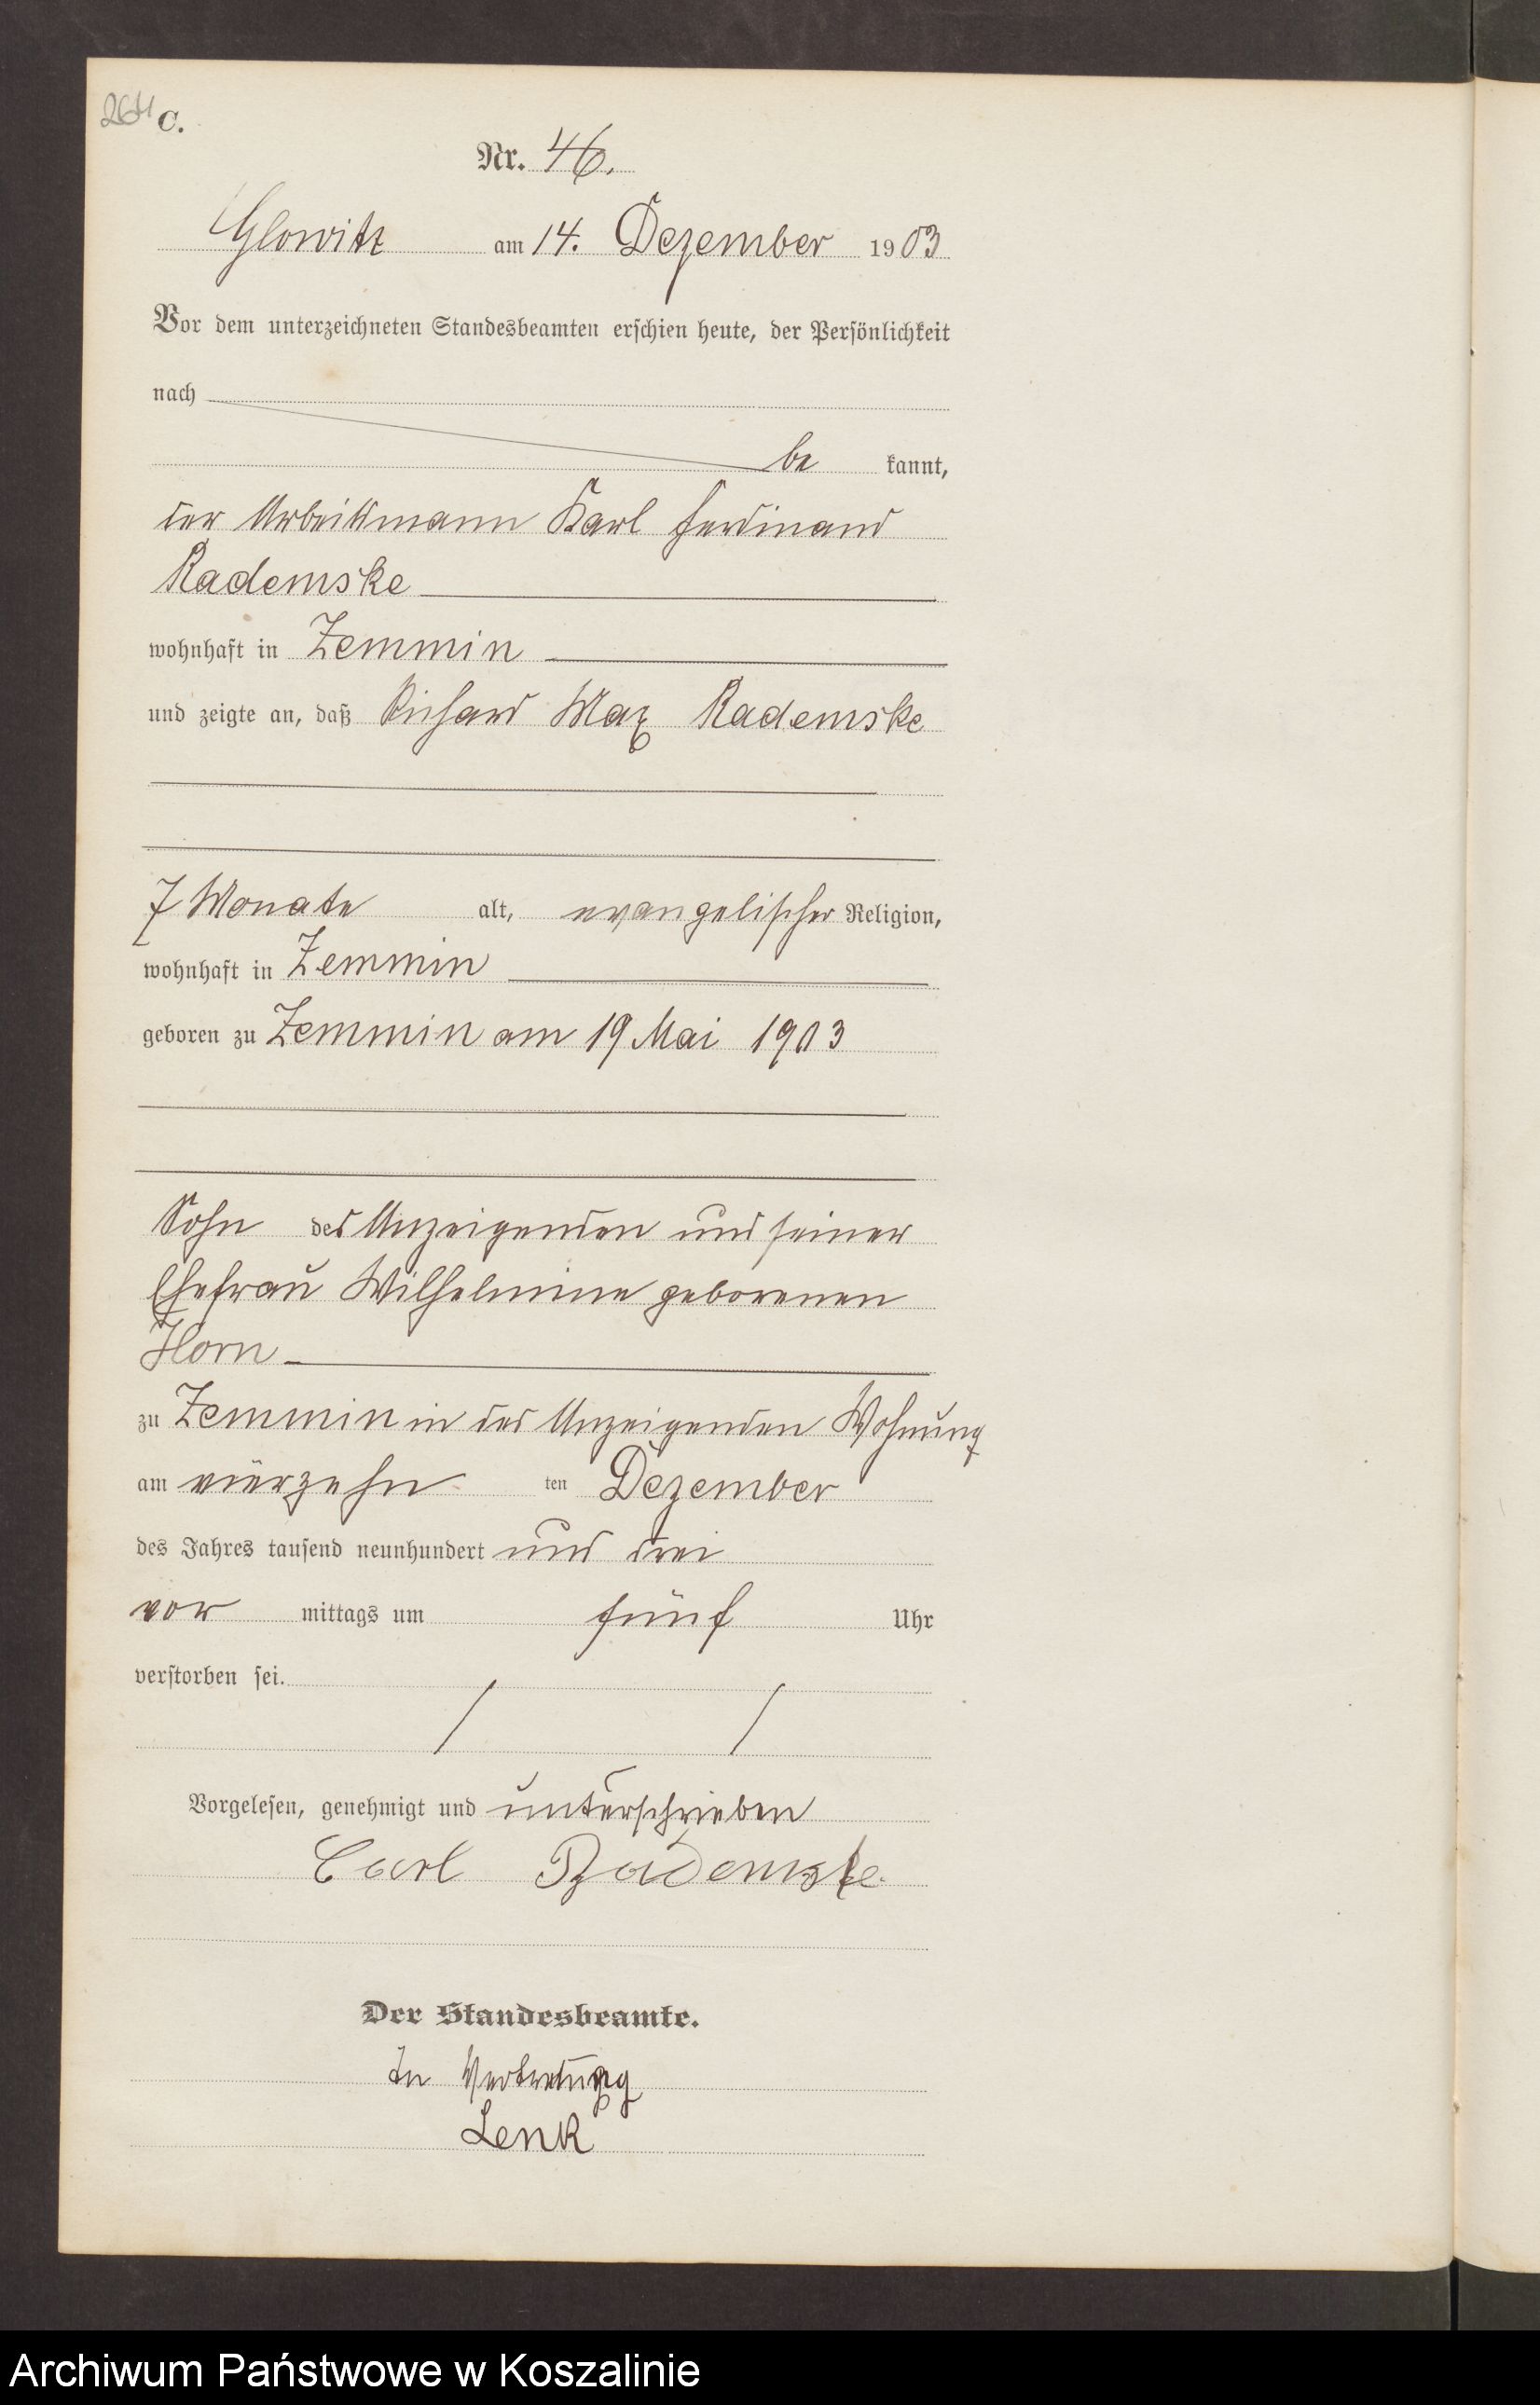 264
C.
Nr. 46.
Glowitz am 14. Dezember 1903
Vor dem unterzeichneten Standesbeamten erschien heute, der Persönlichkeit
nach
be kannt,
der Arbeitsmann Karl Ferdinand
Rademske
wohnhaft in Zemmin
und zeigte an, daß Richard Max Rademske
7 Monate alt, evangelischer Religion,
wohnhaft in Zemmin
geboren zu Zemmin am 19 Mai 1903
Sohn des Anzeigenden und seiner
Ehefrau Wilhelmine geborenen
Horn
zu Zemmin in des Anzeigenden Wohnung
am vierzehn ten Dezember
des Jahres tausend neunhundert und drei
vor mittags um fünf Uhr
verstorben sei.
Vorgelesen, genehmigt und unterschrieben
Carl Rademske.
Der Standesbeamte.
In Vertretung
Lenk
Archiwum Państwowe w Koszalinie